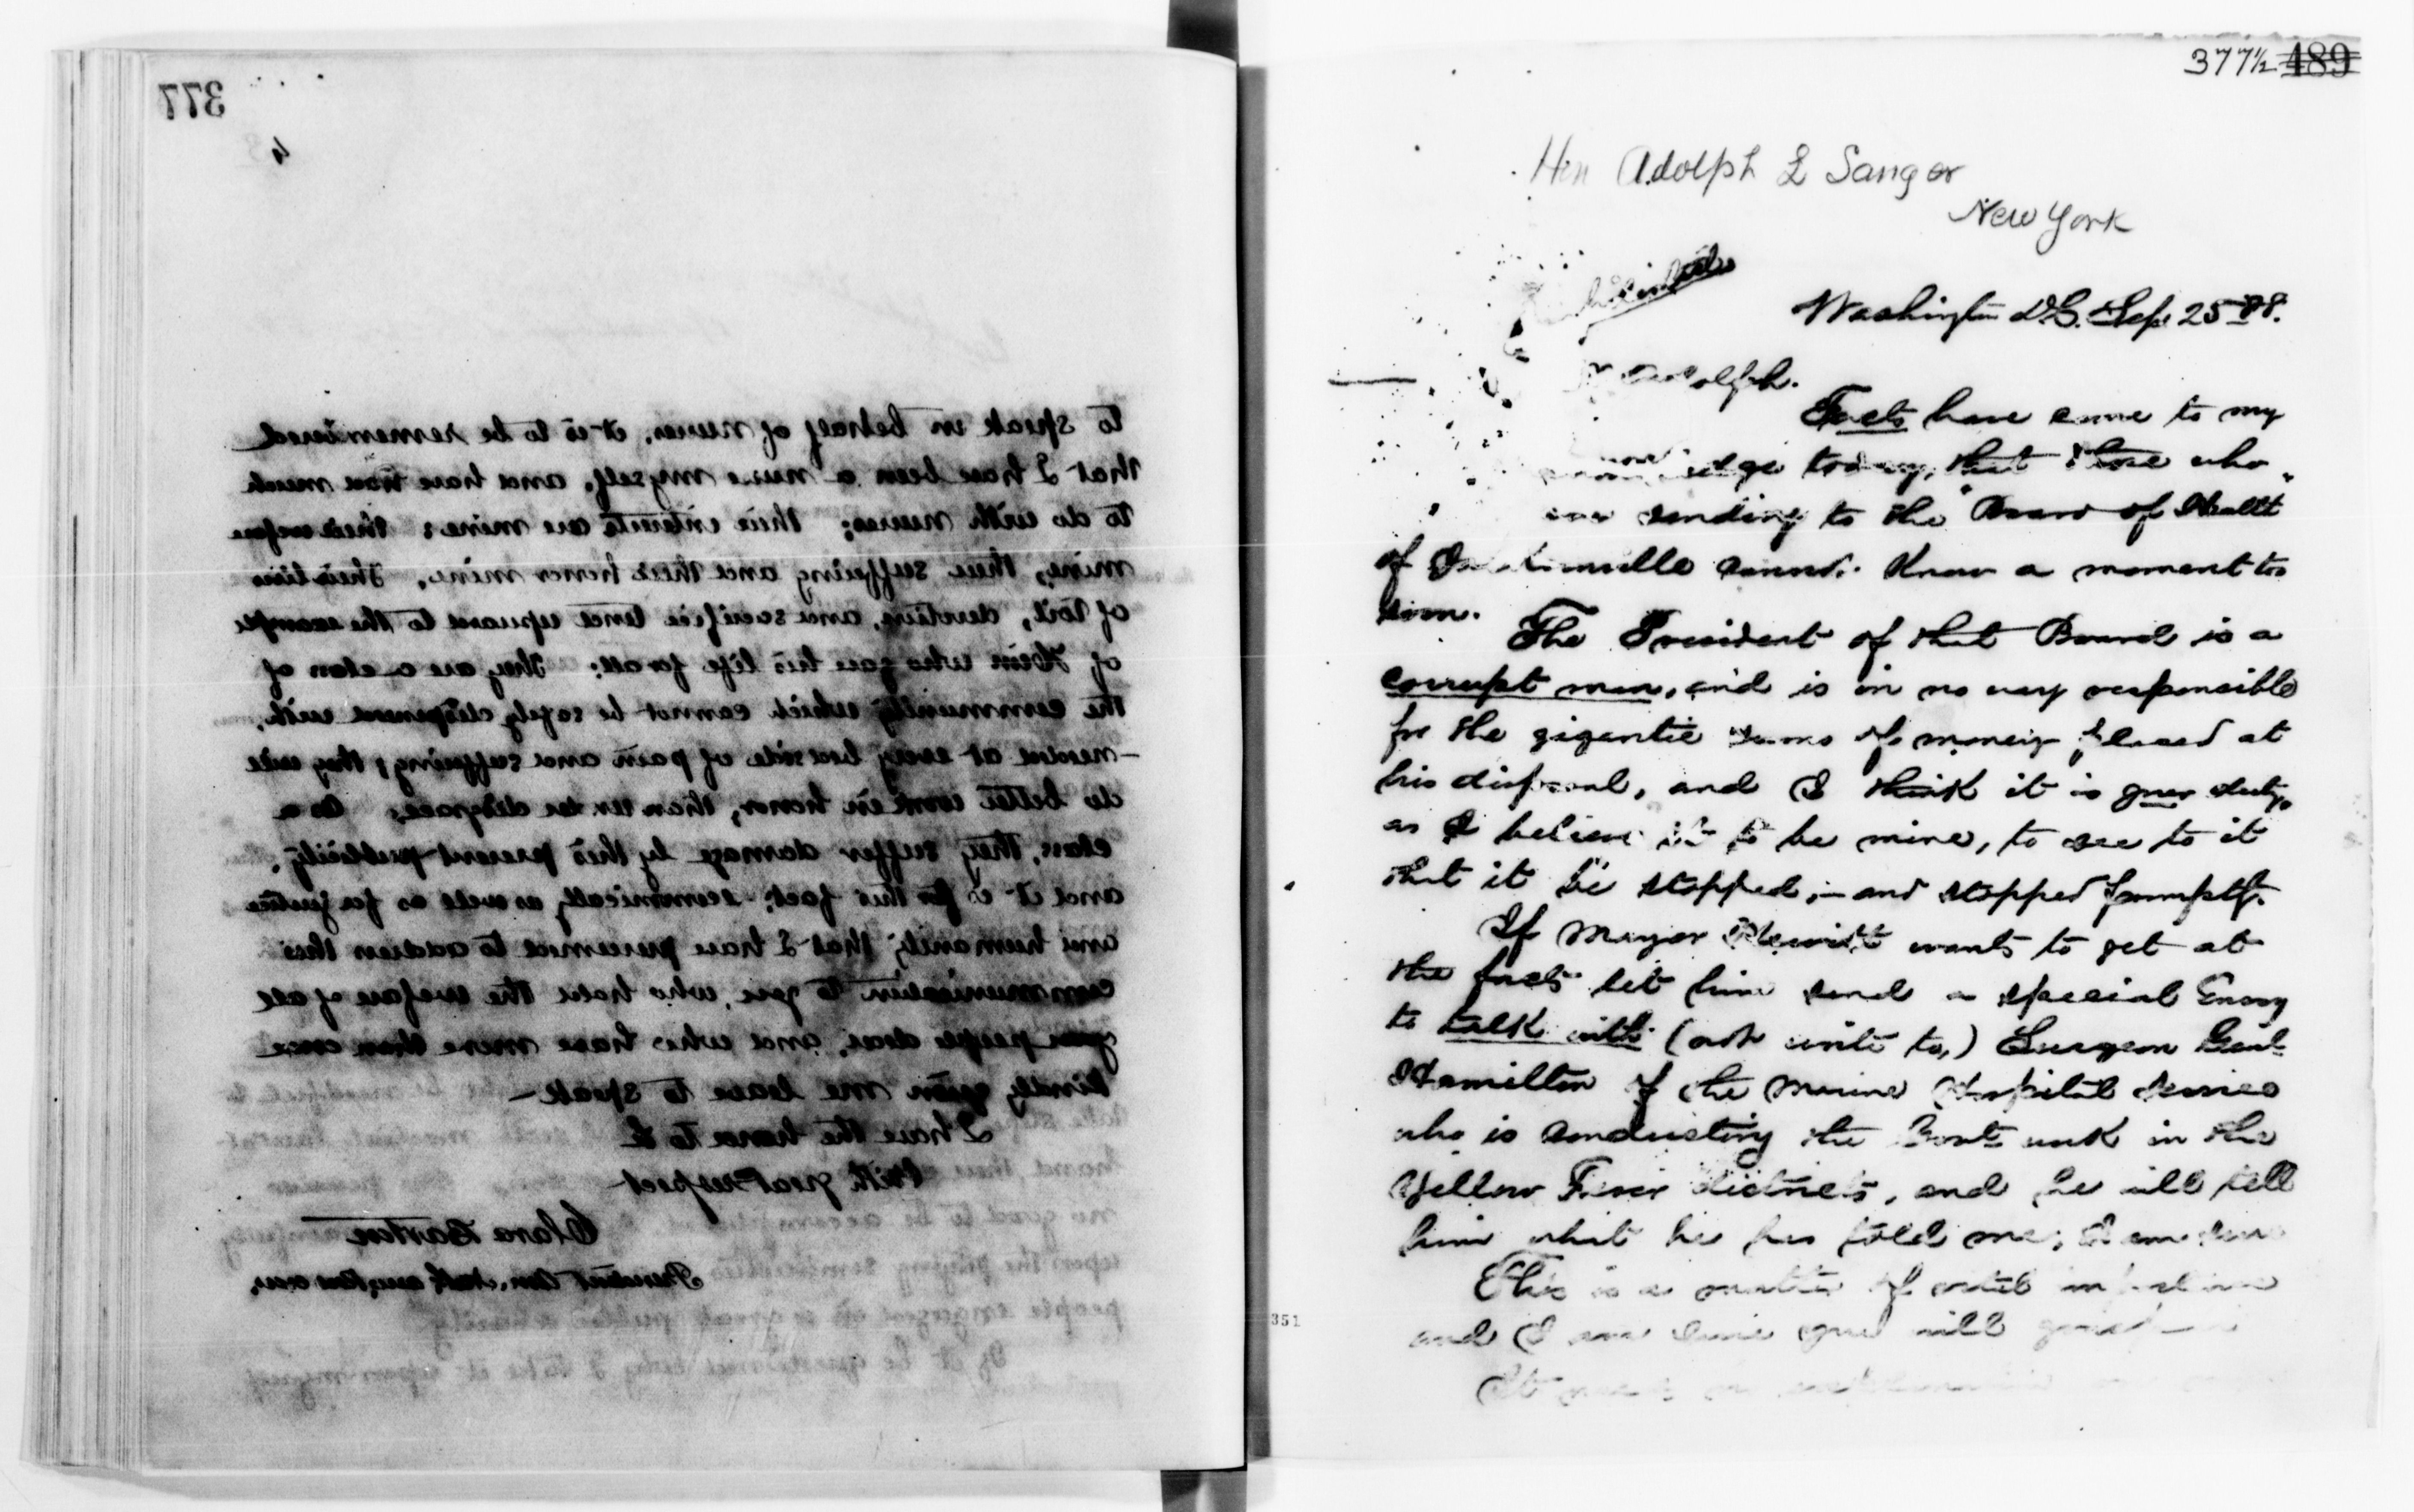 377
4
to speak in behalf of nurses, it is to be remembered
that I have been a nurse myself, and have had much
to do with nurses; their interests are mine; their welfare
mine, their suffering and their honor mine. Their lives
of toil, devotion, and sacrifice tend upward to the example
of Him who gave his life for all: they are a class of
the community which cannot be safely dispensed with,
needed at every bedside of pain and suffering; they will
do better work in honor, than in disgrace; as a
class, they suffer damage by this present publicity,
and it is for this fact, economically as well as for justice
and humanity, that I have presumed to address this
communication to you, who hold the welfare of all
your people dear, and who have more than once
kindly given me leave to speak—
I have the honor to be
With great respect
Clara Barton
President Am. Natl
377½ 489
Hon Adolph L Sanger
New York
Washington D.C. Sep 25 88.
Adolph.
Facts have come to my
today, that those who
are sending to the "Board of Health"
of cannot know a moment too
soon.
The President of that Board is a
corrupt man, and is in no way responsible
for the gigantic sums of money placed at
his disposal, and I think it is your duty,
as I believe it to be mine, to see to it
that it be stopped,—and stopped promptly.
If Mayor Hewitt wants to get at
the facts let him send a special Envoy
to talk with (not write to,) Surgeon Genl
Hamilton of the Marine Hospital Service
who is conducting the Govt work in the
Yellow Fever districts, and he will tell
him what he has told me, I am sure
This is a matter of vital importance
and I am sure you will
It
351